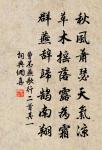 秋風蕭瑟天氣涼
草木搖落露為霜
群燕辭歸鵠南翔
曹丕燕歌行二首其一